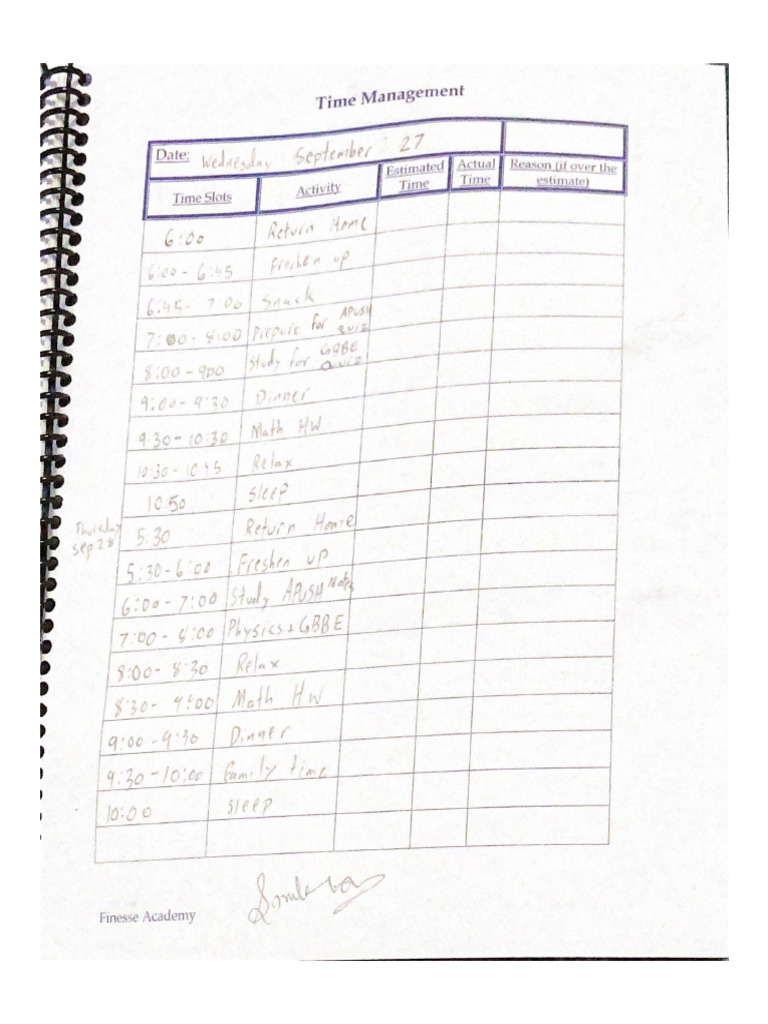 Time Management
Date: Wednesday September 27
Time Slots Activity Estimated Time Actual Time Reason (if over the estimate)
6:00 Return Home
6:00 - 6:45 Freshen up
6:45- 7:00 Snack
7:00- 8:00 Prepare for APUSH quiz
8:00 - 900 Study for GBBE Quiz
9:00 - 9:30 Dinner
9:30- 10:30 Math HW
10:30 - 10:45 Relax
10:50 sleep
Thursday Sep 28 5:30 Return Home
5:30-6:00 Freshen up
6:00 - 7:00 Study APUSH Notes
7:00 - 8:00 Physics + GBBE
8:00- 8:30 Relax
8:30- 9:00 Math HW
9:00 - 9:30 Dinner
9:30 - 10:00 family time
10:00 sleep
Finesse Academy